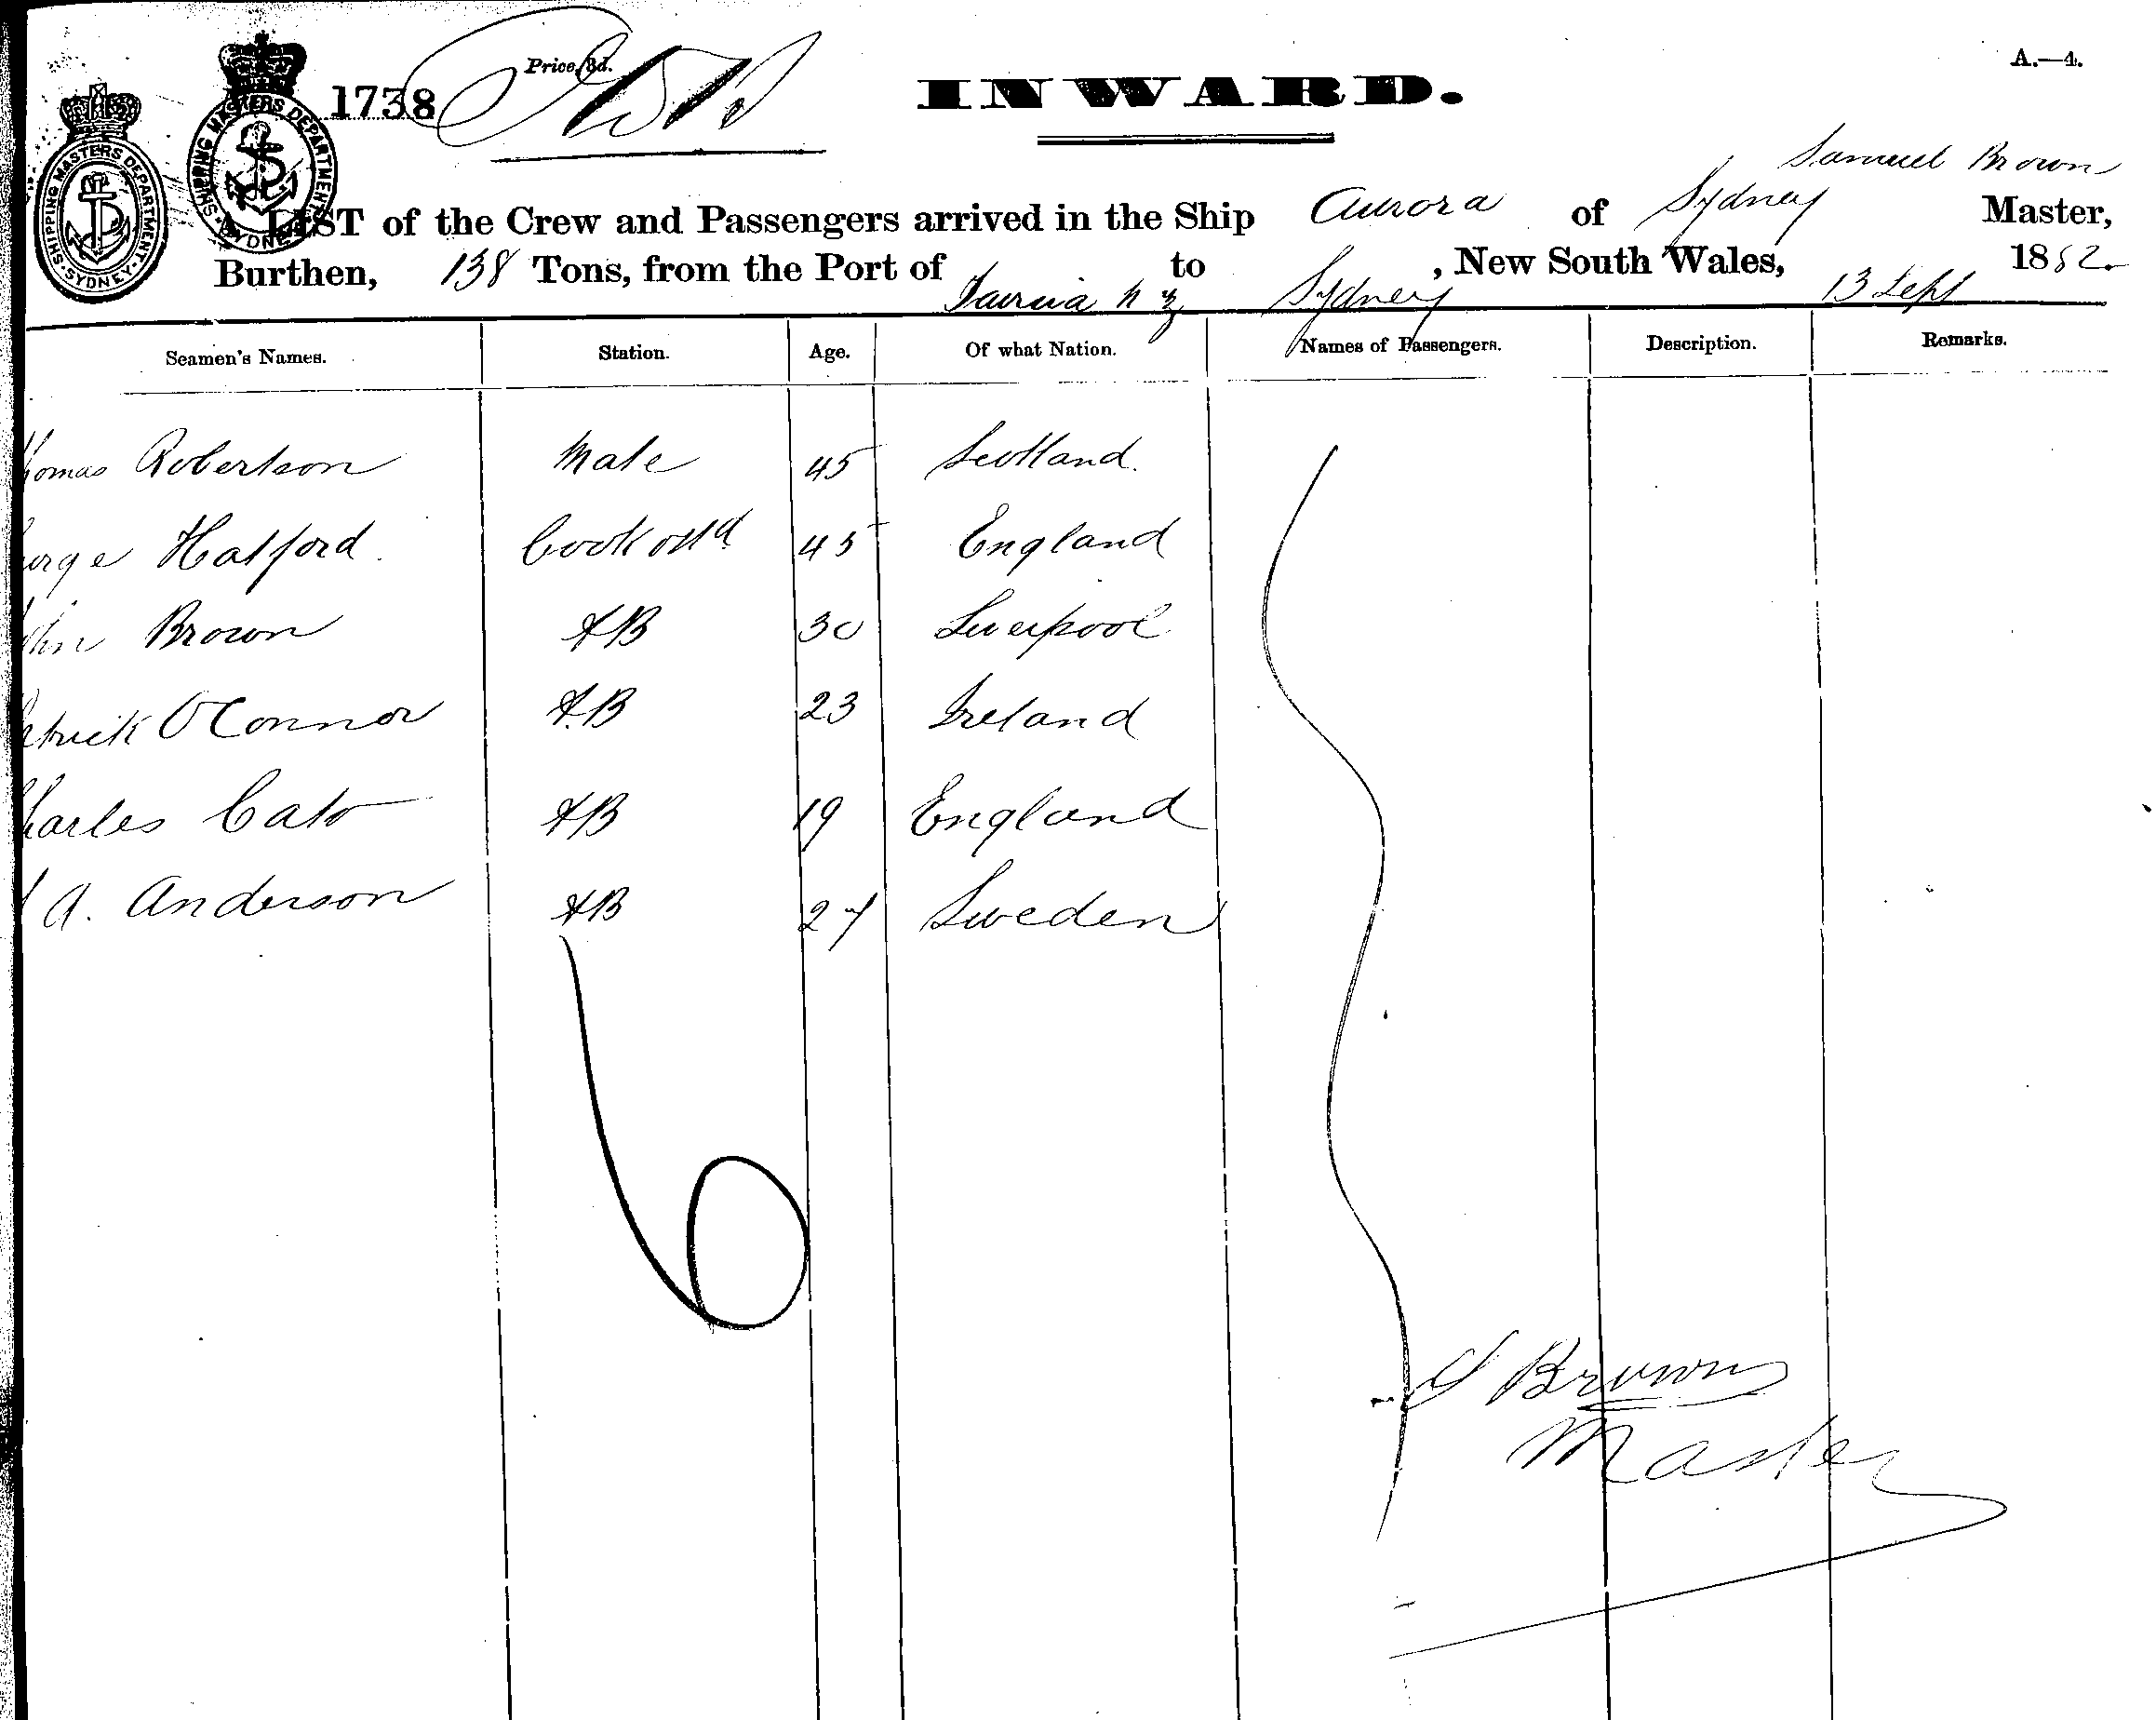 A.—4.
1738
Price, 3d.
INWARD.
SHIPPING MASTERS DEPARTMENT SYDNEY
SHIPPING MASTERS DEPARTMENT SYDNEY
Samuel Brown
A LIST of the Crew and Passengers arrived in the Ship Aurora of Sydney Master,
Burthen, 138 Tons, from the Port of N Z to Sydney, New South Wales, 13 Sept 1882.
Seamen's Names. Station. Age. Of what Nation. Names of Passengers. Description. Remarks.
homas Robertson Mate 45 Scotland.
orge Hatford. Cook 45 England
ohn Brown AB 30 Liverpool
atrick O'Connor AB 23 Ireland
harles Cato AB 19 England
A. Anderson AB 27 Sweden
S Brown
Master